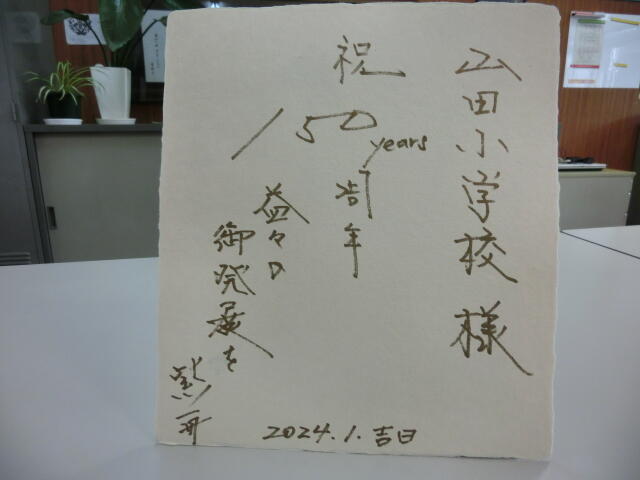 山田小学校 様
祝
150 years
周年
益々の
御発展を
2024.1.吉日